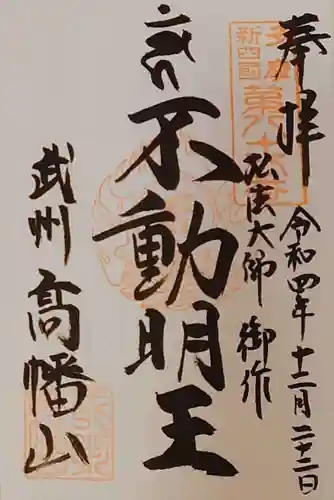 奉拝
令和四年十二月二十二日
多摩
新四國
第八十八
弘法大師 御作
不動明王
武州 高幡山